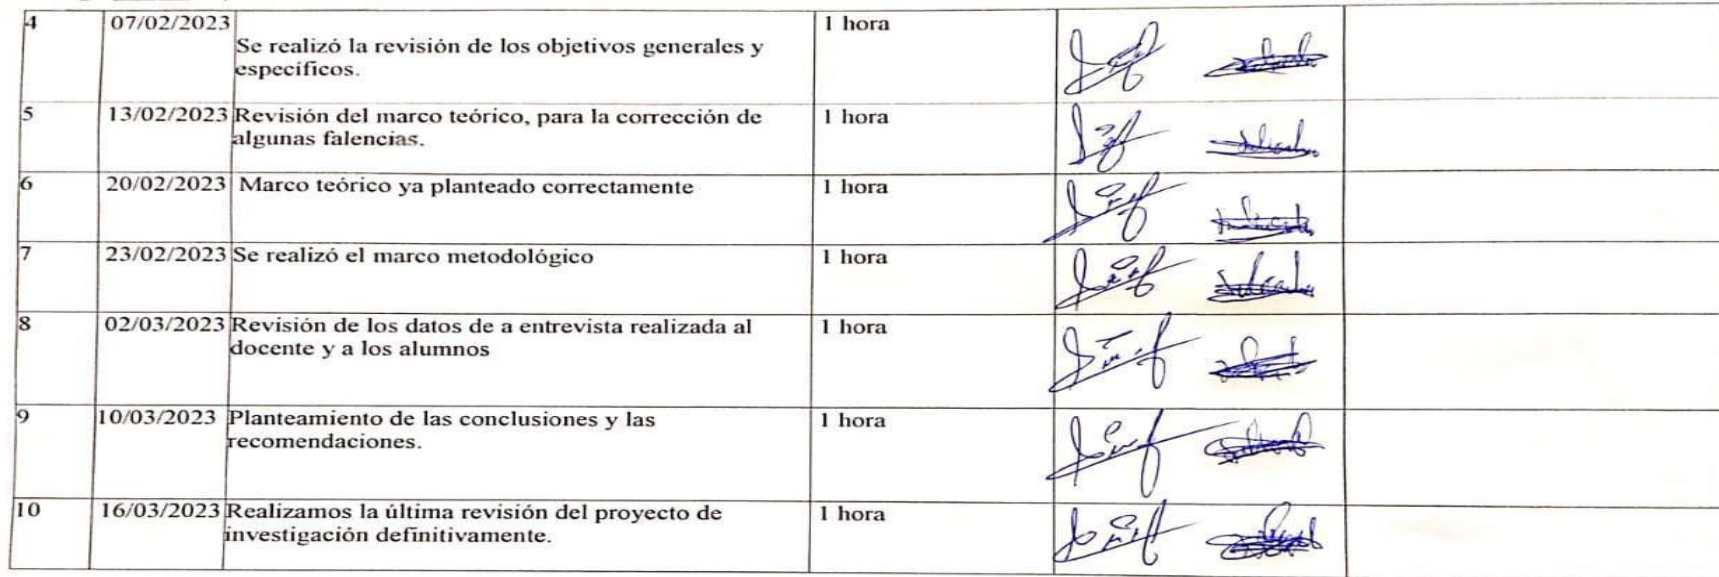 4 07/02/2023 1 hora
Se realizó la revisión de los objetivos generales y
específicos.
5 13/02/2023 Revisión del marco teórico, para la corrección de 1 hora
algunas falencias.
6 20/02/2023 Marco teórico ya planteado correctamente 1 hora
7 23/02/2023 Se realizó el marco metodológico 1 hora
8 02/03/2023 Revisión de los datos de a entrevista realizada al 1 hora
docente y a los alumnos
9 10/03/2023 Planteamiento de las conclusiones y las 1 hora
recomendaciones.
10 16/03/2023 Realizamos la última revisión del proyecto de 1 hora
investigación definitivamente.